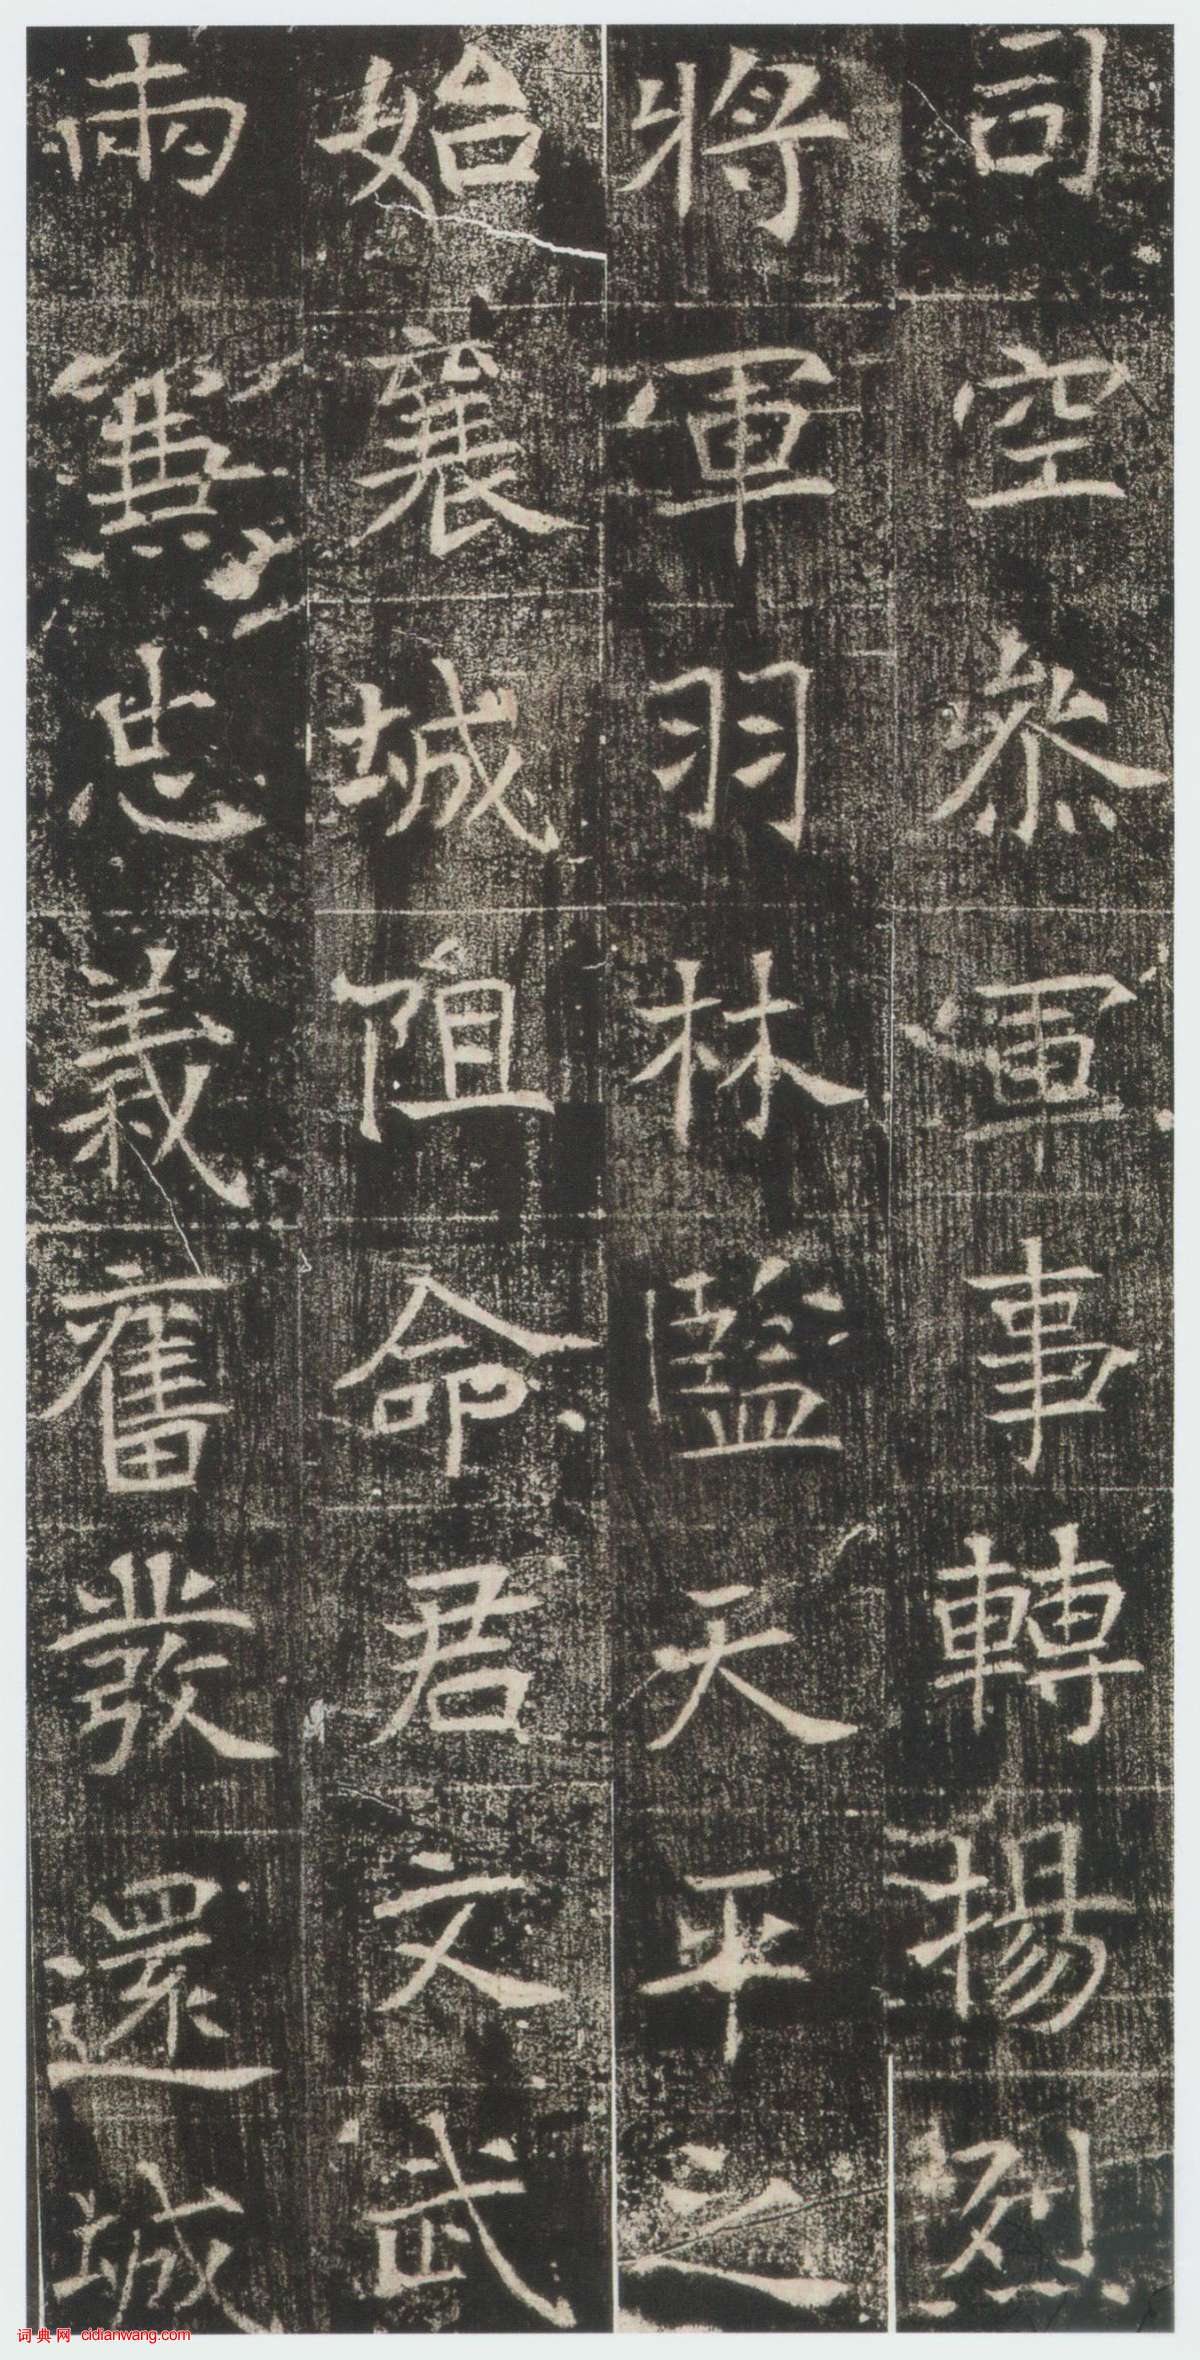 司空參軍事轉揚烈
將軍羽林監天平之
始襄城阻命君文武
兩兼忠義奮發還城
词典网 cidianwang.com